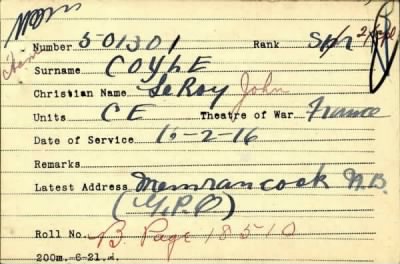 Number 501301 Rank Spr
Surname COYLE
Christian Name LeRoy John
Units CE Theatre of War France
Date of Service 16-2-16
Remarks
Latest Address Memramcook N.B.
(G.P.O)
Roll No. B. Page 18510
200m.-6-21.